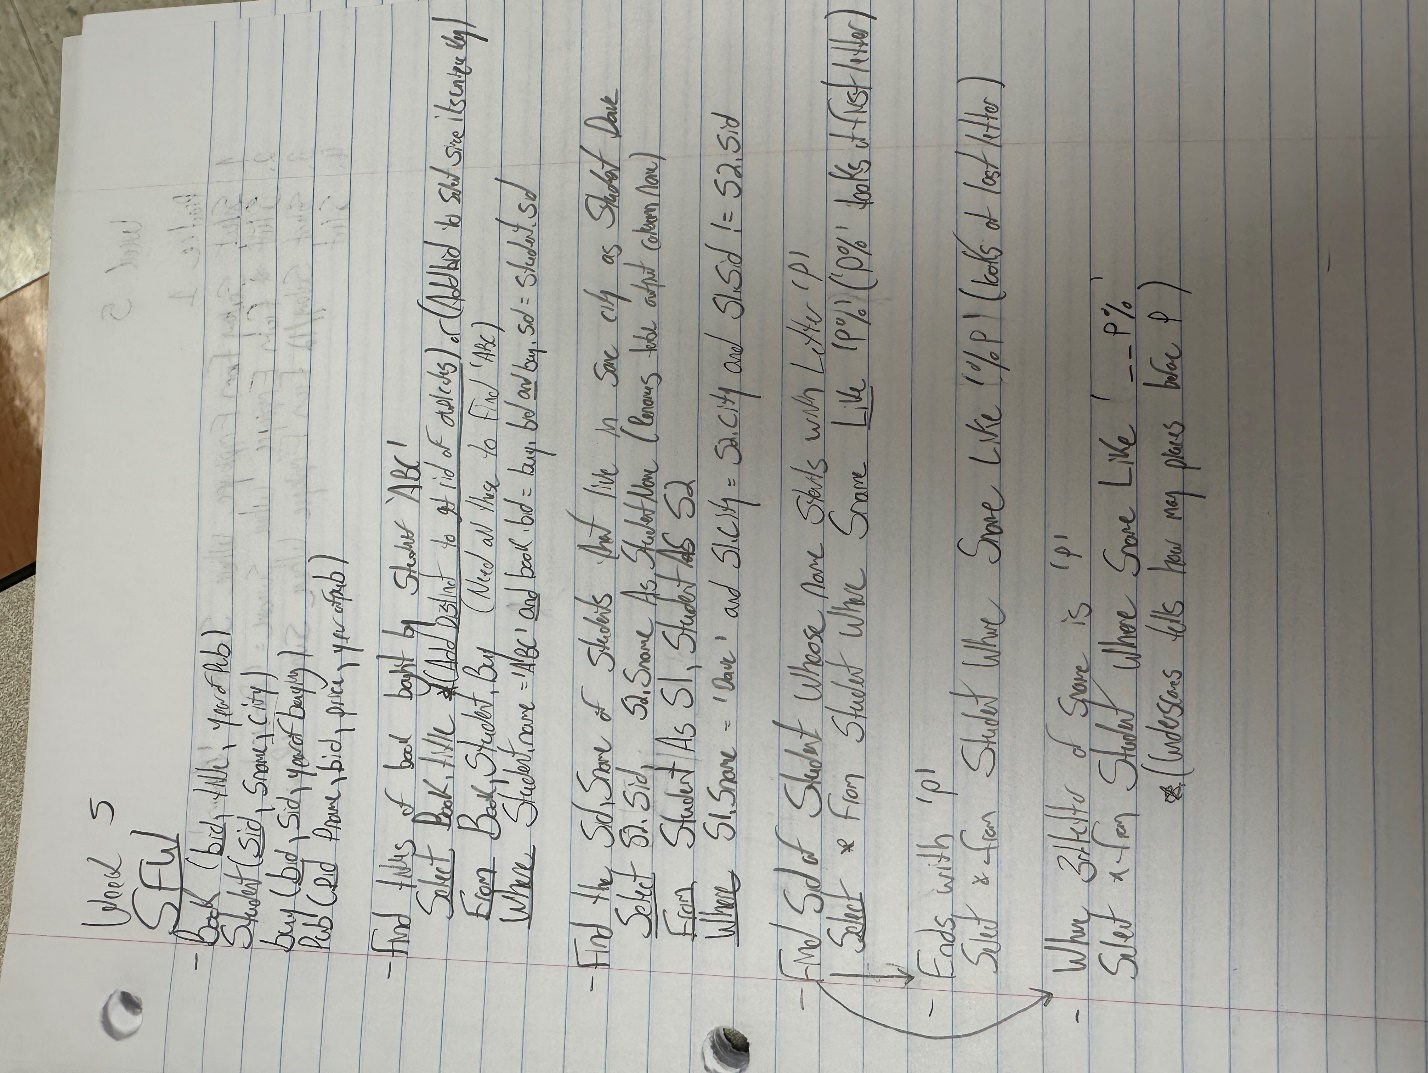 Week 5
SFW
- Book (bid, title, yearofPub)
Student (Sid, Sname, city)
buy (bid, Sid, yearofbuying)
Pub (pid Pname, bid, price, yearofpub)
- Find titles of book bought by Student 'ABC'
Select Book.title *(Add Distinct to get rid of or (Add bid to Select Since its entire key)
From Book, Student, Buy (Need all these to Find 'ABC)
Where Student.name = 'ABC' and book.bid = buy.bid and buy.Sid = Student.Sid
- Find the Sid, Sname of Students that live in Same city as Student Dave
Select S2.Sid, S2.Sname As StudentName (Renames table output column Name)
From Student As S1, Student AS S2
Where S1.Sname = 'Dave' and S1.city = S2.city and S1.Sid != S2.Sid
- Find Sid of Student Whoose name Starts with Letter 'P'
Select * From Student Where Sname Like 'P%' ('P%' looks at first letter)
- Ends with 'P'
Select * From Student Where Sname Like '%P' (looks at last letter)
- Where 3rd letter of Sname is 'P'
Select * From Student Where Sname Like '__P%'
*(Underscores tells how many places before P)